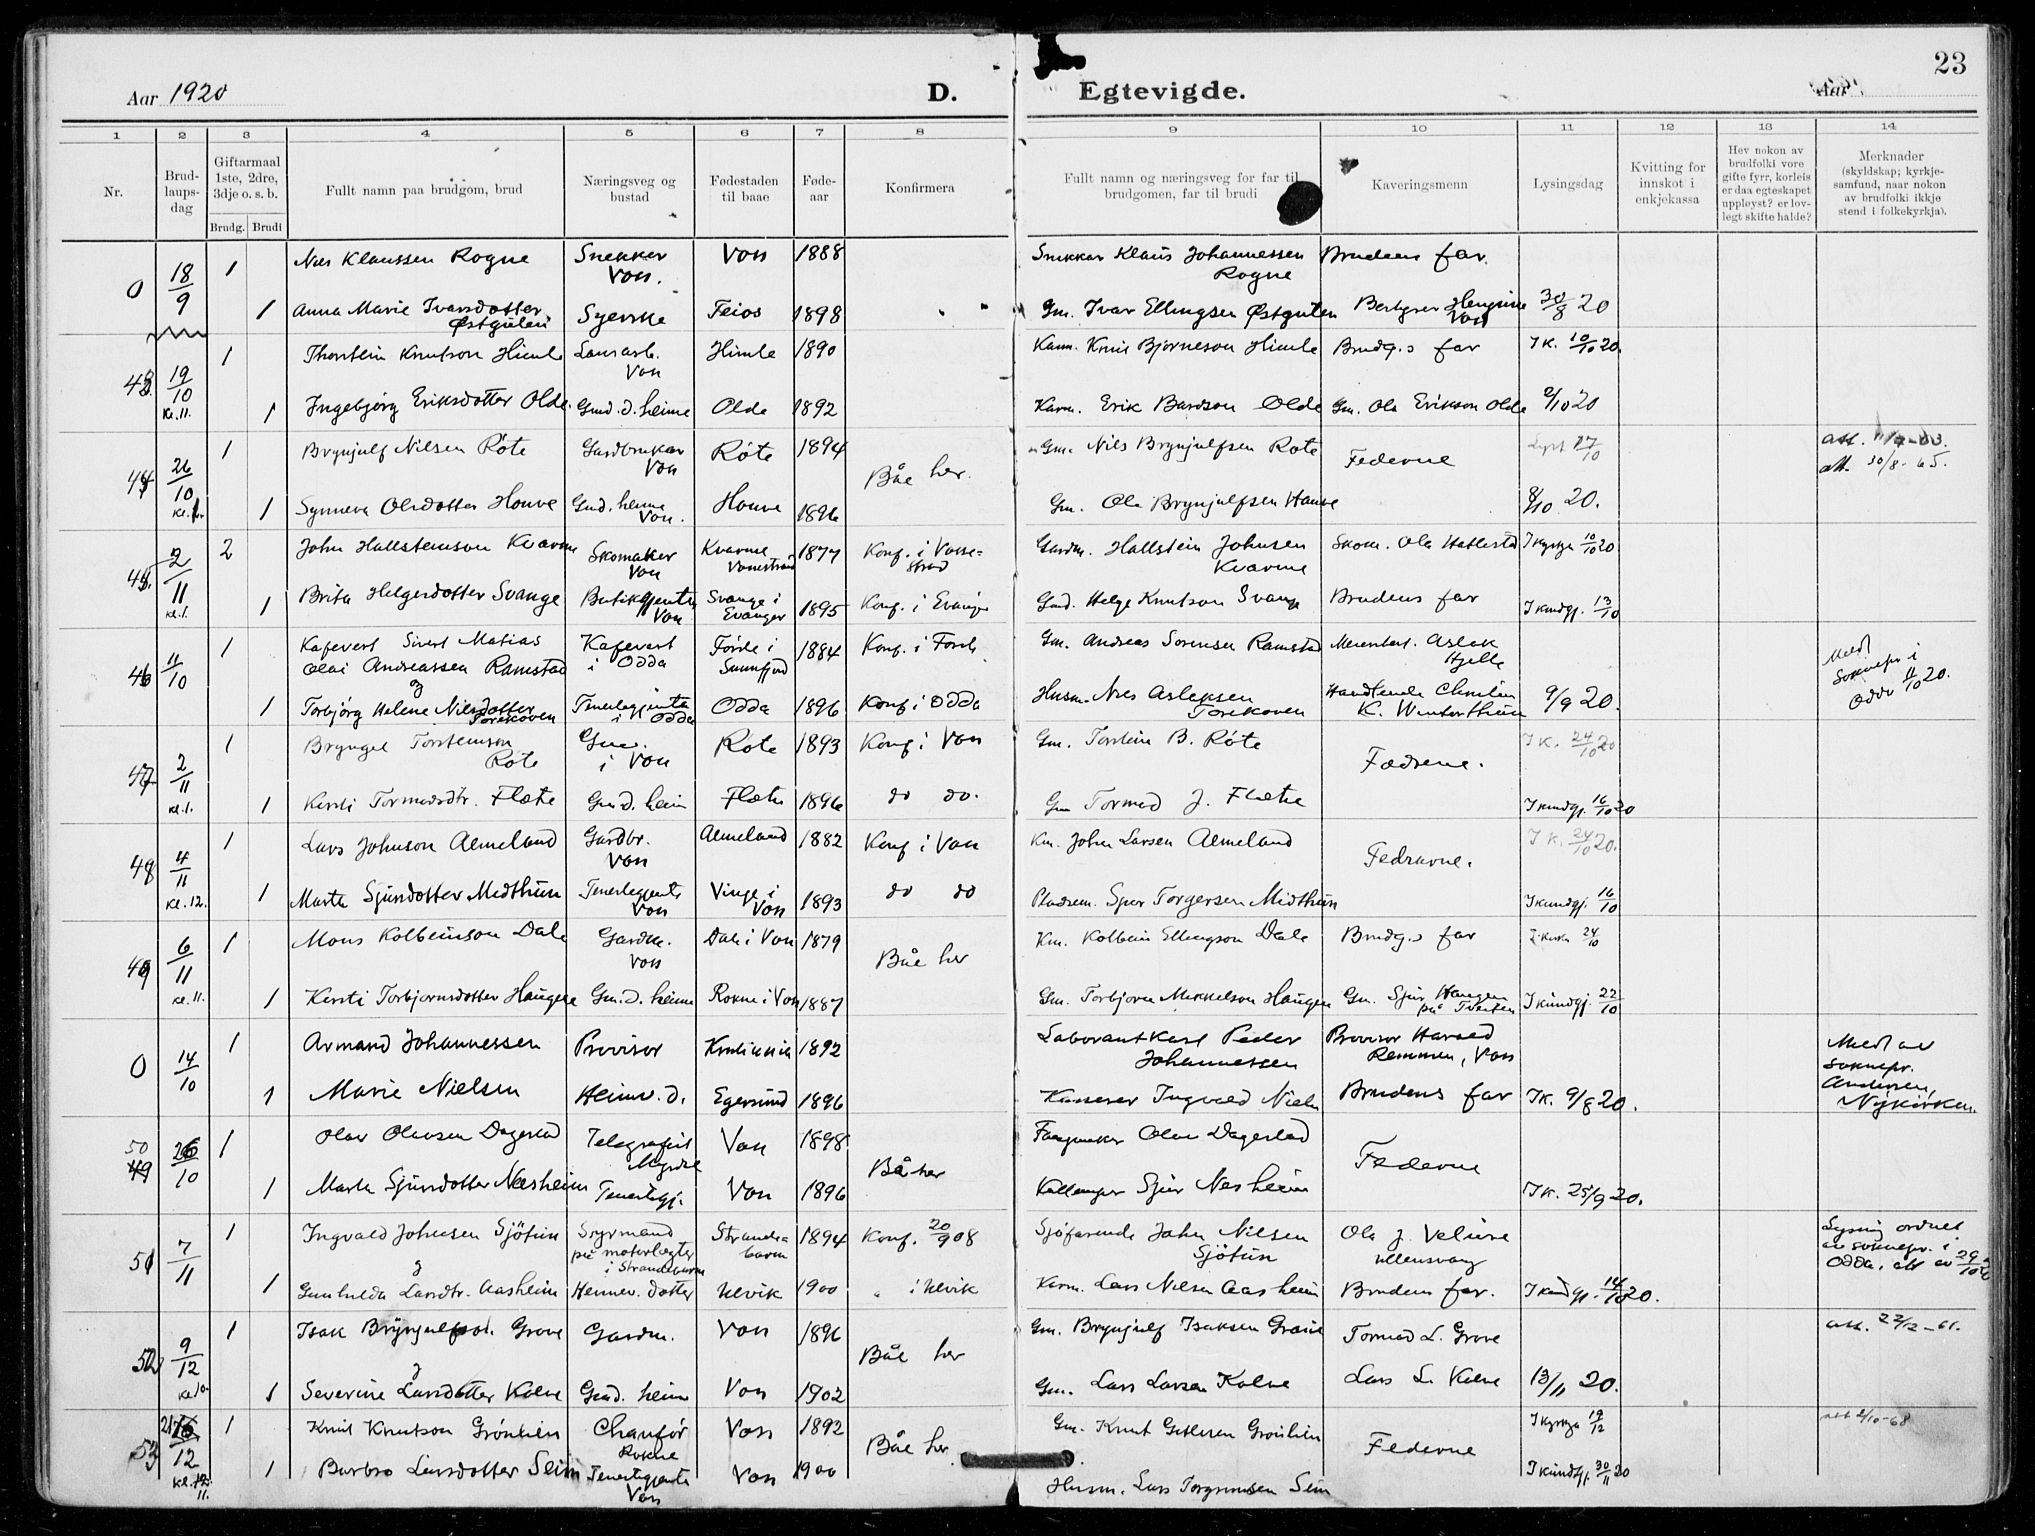 23
Aar 1920 D. Egtevigde. Aar
1 2 3 4 5 6 7 8 9 10 11 12 13 14
Nr. Brud-laups-dag Giftarmaal 1ste, 2dre, 3dje o. s. b. Brudg. Brudi Fullt namn paa brudgom, brud Næringsveg og bustad Fødestaden til baae Føde-aar Konfirmera
Fullt namn og næringsveg for far til brudgomen, far til brudi Kaveringsmenn Lysingsdag Kvitting for innskot i enkjekassa Hev nokon av brudfolki vore gifte fyrr, korleis er daa egteskapet uppløyst? er lov-legt skifte halde? Merknader (skyldskap; kyrkje-samfund, naar nokon av brudfolki ikkje stend i folkekyrkja).
0 18/9 1 Nils Klaussen Rogne Snekker Voss. Voss 1888 Snekkar Klaus Johannessen Rogne Brudens far.
1 Anna Marie Ivarsdotter Østgulen Syerske Feios 1898 Gm. Ivar Ellingsen Østgulen Voss 30/8 20
19/10 kl. 11. 1 Thorstein Knutson Himle Voss Himle 1890 Knut Bjørneson Himle Brudg.s far I K. 10/10 20.
1 Ingebjørg Eriksdotter Olde Gmd. d. heime Olde 1892 Karm. Erik Bardson Olde Gm. Ola Erikson Olde 2/10 20
26/10 1 Brynjulf Nilsen Röte Gardbrukar Voss Röte 1894 Båe her. Gm. Nils Brynjulfsen Rote Federne Lyst 17/10 att. 30/8-65.
1 Synneva Olsdotter Houve Gmd. heime Voss. Houve 1896 Gm. Ola Brynjulfsen Hauve 8/10 20.
45. 2/11 kl. 1. 2 John Hallsteinson Kvarme Skomaker Voss Kvarme Vossestrand 1877 Konf. i Vosse-strand Gardm. Hallstein Johnsen Kvarme Skom. Ola Hatlestad I kyrkja 10/10 20.
1 Brita Helgesdotter Svange Butikkjenta Voss Svange i Evanger 1895 Konf. i Evanger Gmd. Helge Knutson Svange Brudens far I kundgj. 13/10
46 11/10 1 Kafevert Sivert Matias Olai Andreassen Ramstad Kafevert i Odda Førde i Sunnfjord 1884 Konf. i Førde Gm. Andreas Sorensen Ramstad Aslak Hjelle Meldt soknepr i Odda 11/10 20.
og
1 Torbjörg Helene Nilsdotter Tenestegjenta i Odda Odda 1896 Konf i Odda Husm. Nils Aslaksen K. Winterthun 9/9 20.
47 2/11 kl. 1. 1 Bryngel Torsteinson Rote Gm. i Voss Rote 1893 Konf i Voss Gm. Torstein B. Röte Fædrene. I K. 24/10 20
1 Kirsti Tormodsdtr. Flæte Gmd. heim Flæte 1896 do do. Gm Tormod J. Flæte I kundgj. 16/10 20
48 4/11 kl. 12. 1 Lars Johnson Almeland Gardbr. Voss Almeland 1882 Konf i Voss Km. John Larsen Almeland Fedrarne. I K. 24/10 20.
1 Marta Sjursdotter Midthun Tenestegjenta Voss Vinje i Voss 1893 do do Pladsm. Sjur Torgersen Midthun I kundgj. 16/10
49 6/11 kl. 11. 1 Mons Kolbeinson Dale Gardm. Voss Dale i Voss 1879 Båe her Km. Kolbein Ellingson Dale Brudg.s far 24/10
1 Kirsti Torbjornsdotter Haugen Gm. d. heime Rokne i Voss 1887 Gm. Torbjorn Mikkelson Haugen Gm. Sjur Haugen på Tveiten I kundgj. 22/10
0 14/10 1 Armand Johannessen Provisor Kristiania 1892 Laborant Karl Peder Johannessen Provisor Harald Remmen, Voss Meldt av soknepr. Andersen, Nykirken
1 Marie Nielsen Heimv. d. Egersund 1896 Kasserer Ingvald Nielsen Brudens far I K. 9/8 20.
50 49 26/10 1 Olav Olavsen Dagestad Telegrafist Voss 1898. Båe her Olav Dagestad Federne
1 Marta Sjursdotter Nesheim Tenestegj. Voss 1896 Sjur Nesheim I K. 25/9 20.
51 7/11 1 Ingvald Johnsen Sjötun Styrmand på motorlegter i Strandebarm Strandebarm 1894 Konf. 20/9 08 Sjöfarende John Nilsen Sjötun Ola J. Velure Ullensvang Lysing ordnet av soknepr. i Odda, att av 29/10 20
og
1 Gunhilda Larsdtr. Aasheim Heimev. dotter Ulvik 1900 " i Ulvik Karm. Lars Nilsen Aasheim Brudens far. I kundgj. 14/10 20.
52 9/12 kl. 10 1 Isak Brynjulfson Grove Gardm. Voss 1896 Båe her Gm. Brynjulf Isaksen Grove Tormod L. Grove att. 22/12-61.
og
1 Severine Larsdotter Kolve Gmd. heime Voss 1902 Gm. Lars Larsen Kolve Lars L. Kolve 13/11 20.
53 21/12 kl. 12 11. 1 Knut Knutson Grönlien Chauför Rokne Voss 1892 Båe her Gm. Knut Grönlien Federne I kyrkja 19/12 att 2/10-68
1 Barbro Larsdotter Seim Tenestegjenta Voss Voss 1900 Husm. Lars Torgrimsen Seim I kundgj. 30/11 20